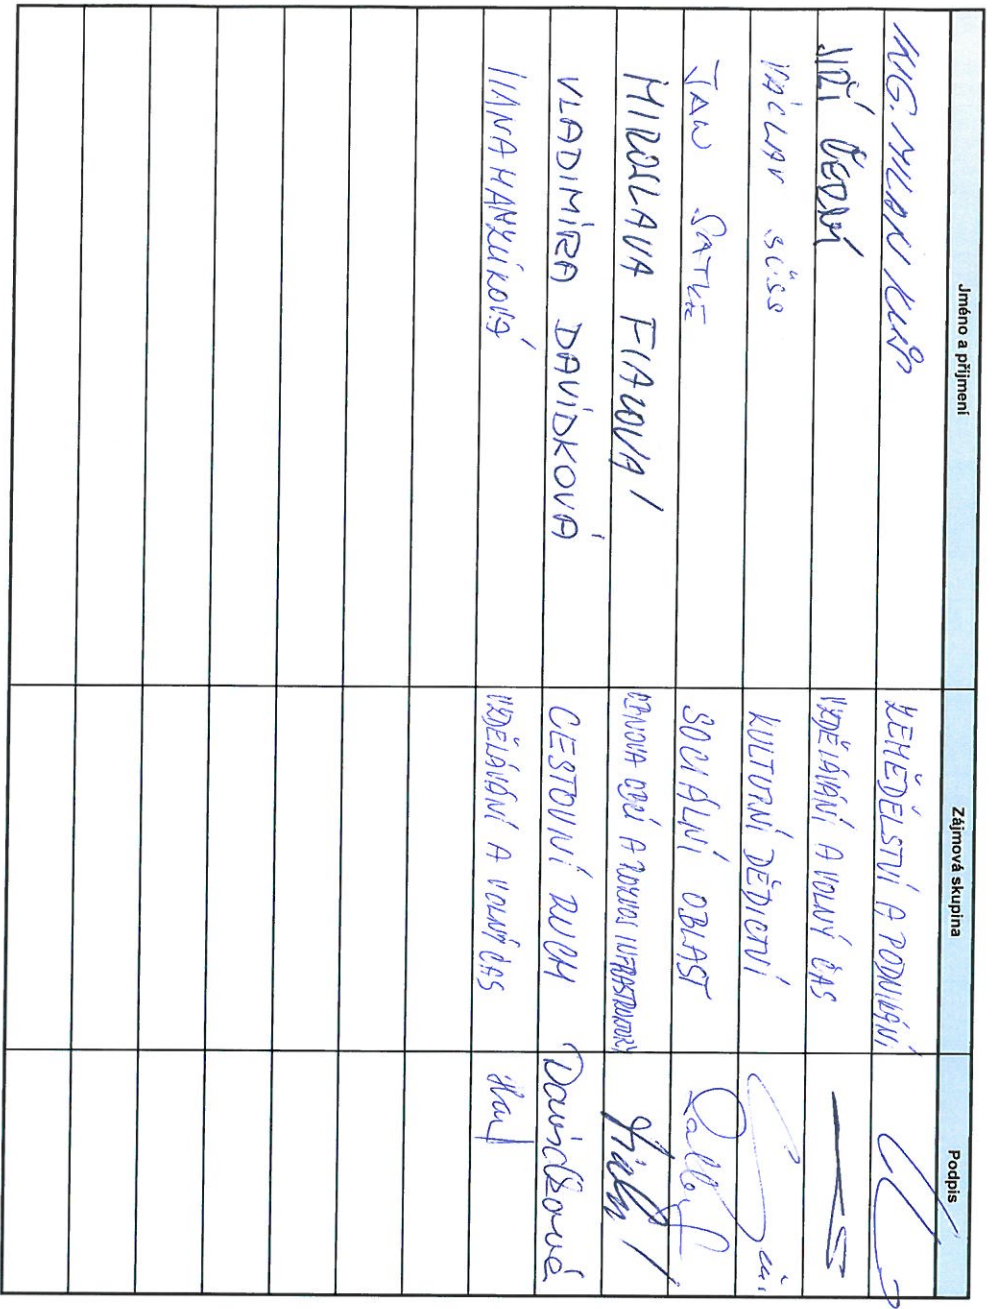 Jméno a příjmení Zájmová skupina Podpis
ING. MILAN ZEMĚDĚLSTVÍ A PODNIKÁNÍ
JIŘÍ VZDĚLÁVÁNÍ A VOLNÝ ČAS
VÁCLAV SÜSS KULTURNÍ DĚDICTVÍ
JAN SOCIÁLNÍ OBLAST
MIROSLAVA FIALOVÁ OBNOVA OBCÍ A ROZVOJ INFRASTRUKTURY
VLADIMÍRA DAVÍDKOVÁ CESTOVNÍ RUCH Davídková
VZDĚLÁVÁNÍ A VOLNÝ ČAS